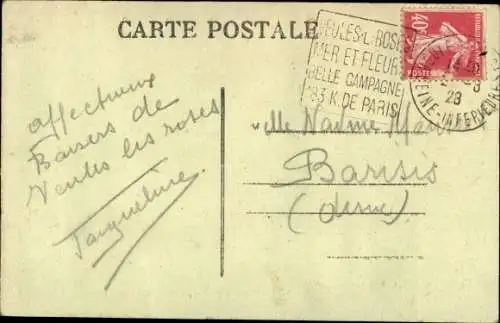 CARTE POSTALE
EULES-L-ROSES
MER ET FLEURS
BELLE CAMPAGNE
183 K. DE PARIS
40
POSTES
28
SEINE-INFERIEURE
affectueux
Baisers de
Veules les roses
Jacqueline
Barisis
(Aisne)